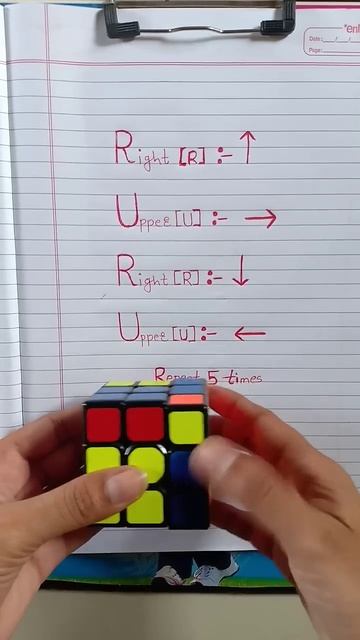 "enl
Date: __/__/__
Page:
Right [R] :- ↑
Upper [U] :- →
Right [R] :- ↓
Upper [U] :- ←
Repeat 5 times